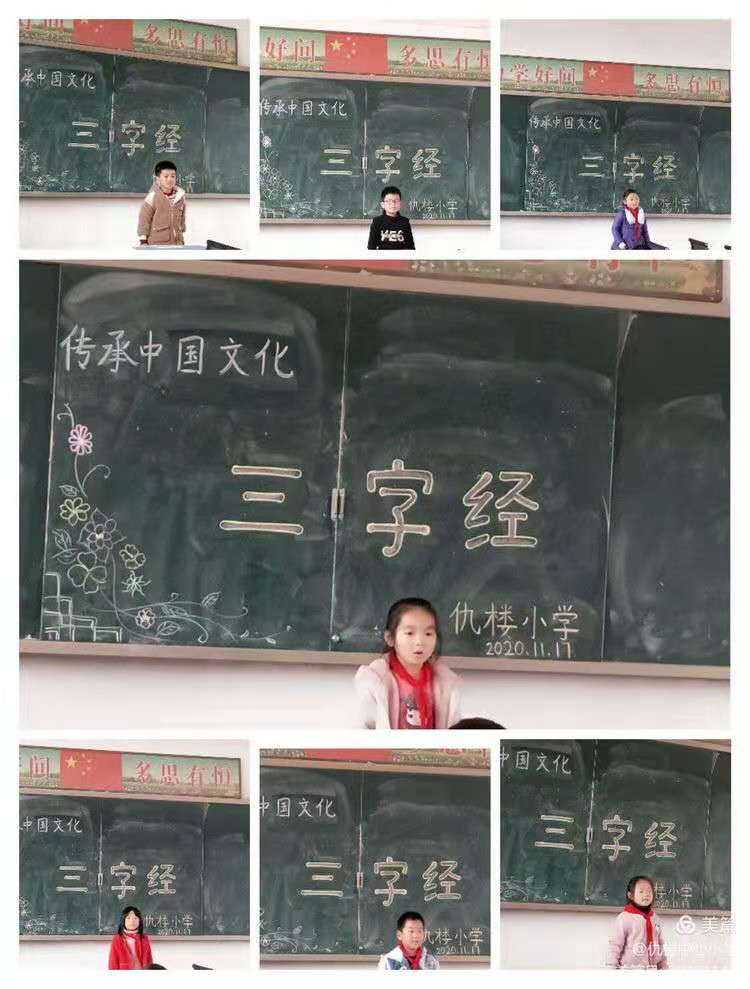 问 多思有恒
承中国文化
三字经
好问 多思有恒
传承中国文化
三字经
仇楼小学
2020.11.17
YES
学好问 多思有恒
传承中国文化
三字经
仇楼小学
2020.11.17
传承中国文化
三字经
仇楼小学
2020.11.17
好问 多思有恒
中国文化
三字经
仇楼小学
2020.11.17
中国文化
三字经
仇楼小学
2020.11.17
中国文化
三字经
小学
美篇
@仇楼